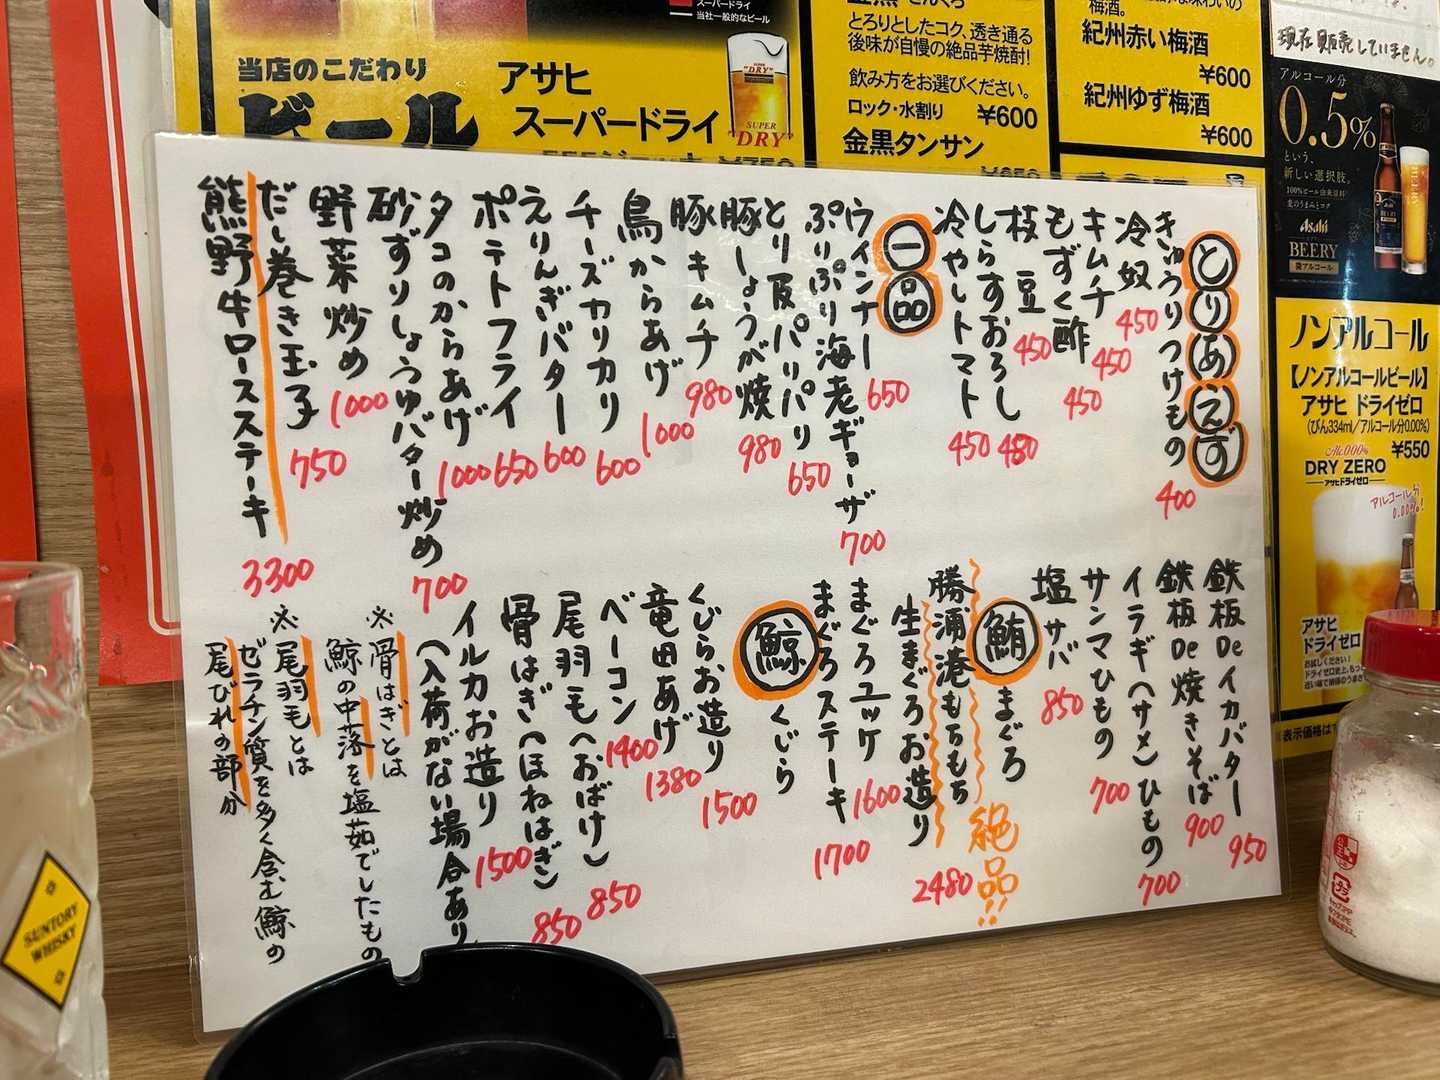 スーパードライ
当社一般的なビール
当店のこだわり
ビール
アサヒ
スーパードライ
SUPER
"DRY"
とろりとしたコク、透き通る
後味が自慢の絶品芋焼酎!
飲み方をお選びください。
ロック・水割り ¥600
金黒タンサン
梅酒。
紀州赤い梅酒
¥600
紀州ゆず梅酒
¥600
現在販売していません。
アルコール分
0.5%
という、
新しい選択肢。
Asahi
BEERY
微アルコール
ノンアルコール
【ノンアルコールビール】
アサヒ ドライゼロ
(びん334ml/アルコール分0.00%)
¥550
Alc.0.00%
DRY ZERO
アサヒドライゼロ
アルコール分
0.00%!
アサヒ
ドライゼロ
とりあえず
きゅうりつけもの 400
冷奴 450
キムチ 450
もずく酢 450
枝豆 450
しらすおろし 480
冷やしトマト 450
一品
ウインナー 650
ぷりぷり海老ギョーザ 700
とり皮パリパリ 650
豚しょうが焼 980
豚キムチ 980
鳥からあげ 1000
チーズカリカリ 600
えりんぎバター 600
ポテトフライ 650
タコのからあげ 1000
砂ずりしょうゆバター炒め 700
野菜炒め 1000
だし巻き玉子 750
熊野牛ロースステーキ 3300
鉄板Deイカバター 950
鉄板De焼きそば 900
イラギ(サメ)ひもの 700
サンマひもの 700
塩サバ 850
鮪 まぐろ 絶品!!
勝浦港もちもち
生まぐろお造り 2480
まぐろユッケ 1600
まぐろステーキ 1700
鯨 くじら
くじらお造り 1500
竜田あげ 1380
ベーコン 1400
尾羽毛(おばけ) 850
骨はぎ(ほねはぎ) 850
イルカお造り 1500
(入荷がない場合あり
※骨はぎとは
鯨の中落を塩茹でしたもの
※尾羽毛とは
ゼラチン質を多く含む鯨の
尾びれの部分
SUNTORY
WHISKY